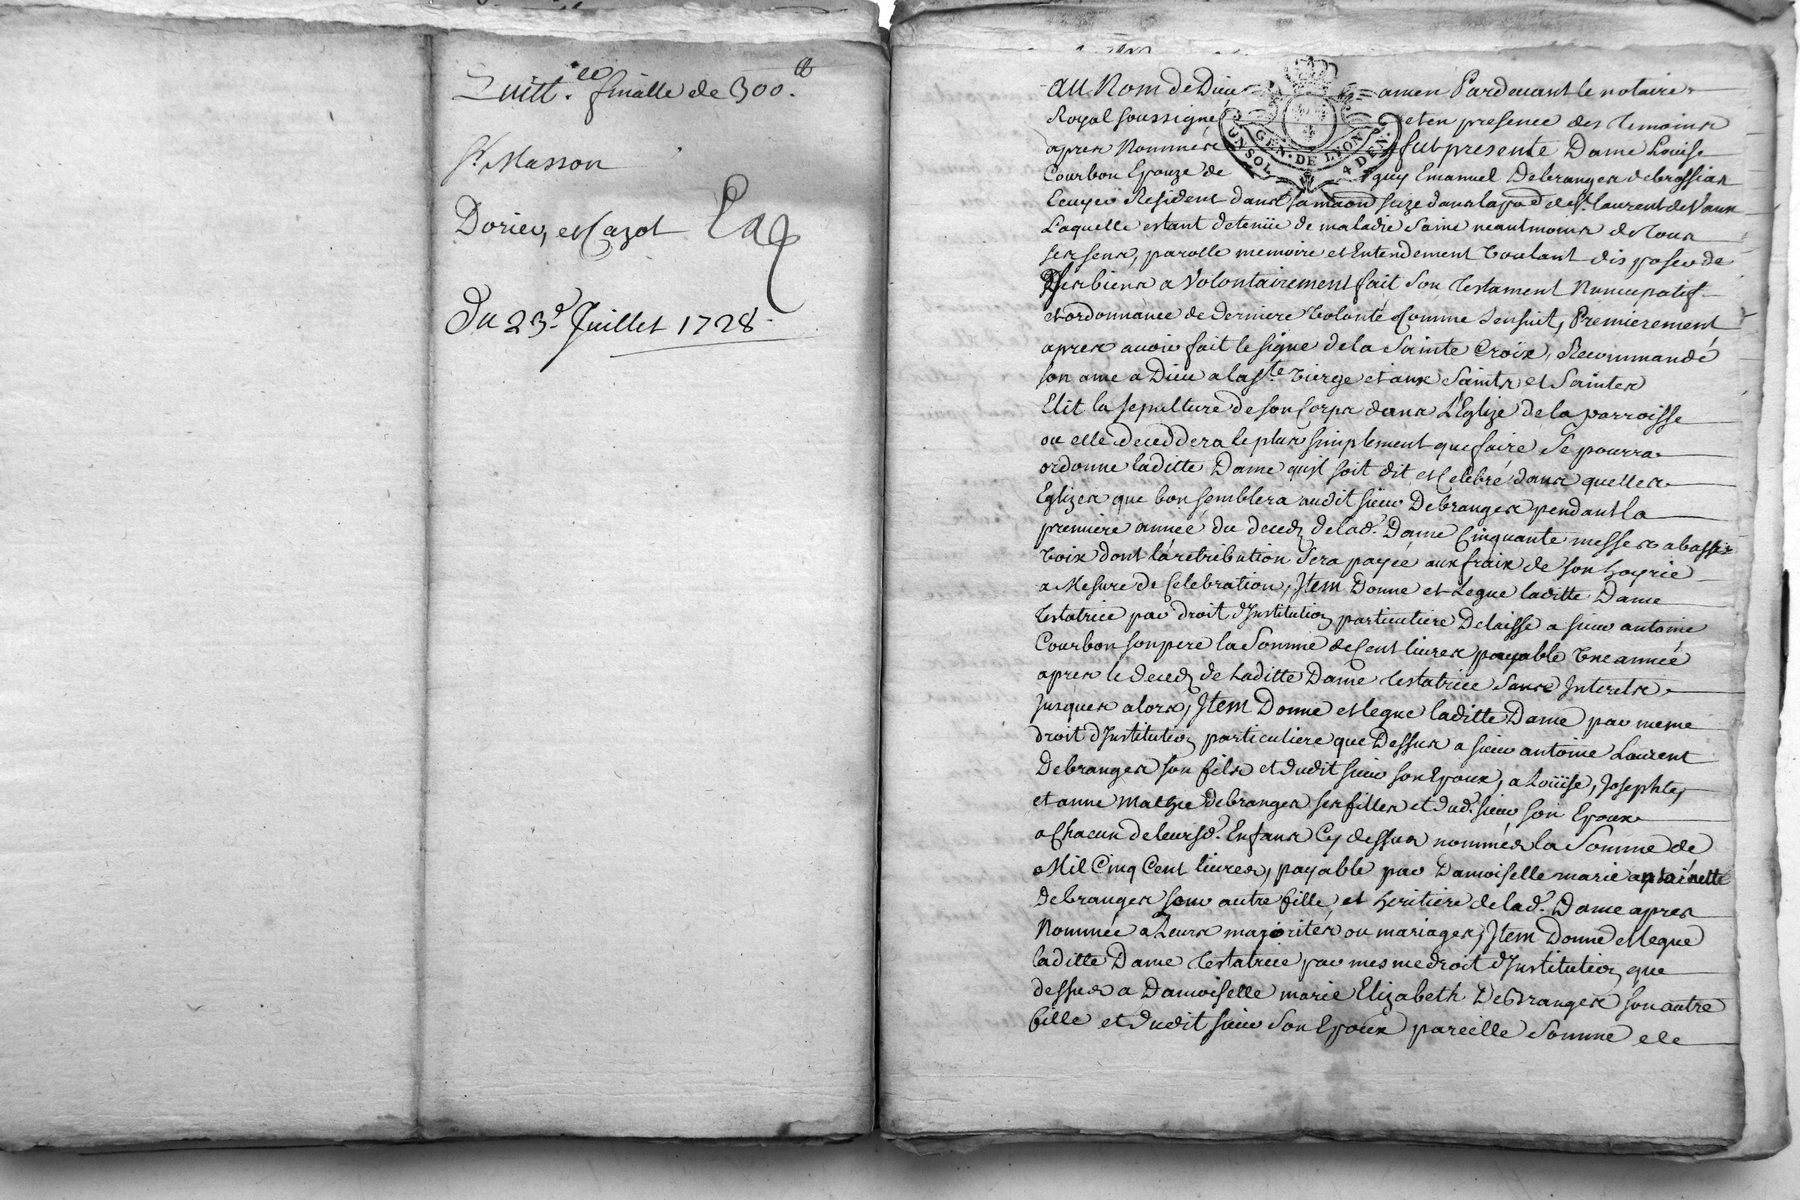 Quitt.ce finalle de 300.tt
Sr. Masson
Dorier, et Cazot
Du 23.e Juillet 1728.
Au Nom de Dieu amen Pardevant le notaire
Royal soussigné et en presence des temoins
apres Nommés fut presente Dame Louise
Courbon Epouze de guy Emanuel Debranges debrossias
Ecuyer Resident dans sa maison seize dans la par. de St. laurent de Vaux
Laquelle estant detenüe de maladie saine neantmoins de tous
ses sens, parolle memoire et Entendement voulant disposer de
ses biens a Volontairement fait son testament Nuncupatif
et ordonnance de derniere volonté Comme s'ensuit, Premierement
apres avoir fait le signe de la sainte Croix, Recommandé
son ame a Dieu a la Ste. vierge et aux saints et saintes
Elit la sepulture de son Corps dans L'Eglize de la parroisse
ou elle deceddera le plus simplement que faire se pourra
ordonne laditte Dame qu'il soit dit et Celebré dans quelles
Eglizes que bon semblera audit sieur Debranges pendant la
premiere année du deceds de lad. Dame Cinquante messes a basse
voix dont la retribution sera payée aux fraix de son hoyrie
a Mesure de Celebration, Item Donne et Legue laditte Dame
testatrice par droit d'Institution particuliere Delaisse a sieur antoine
Courbon son pere la somme de Cent livres payable Une année
apres le deceds de Laditte Dame testatrice sans Interets
Jusques alors, Item Donne et legue laditte Dame par meme
droit d'Institution particuliere que Dessus a sieur antoine Laurent
Debranges son fils et dudit sieur son Epoux, a Loüise, Josephte,
et anne Debranges ses filles et dud. sieur son Epoux
a Chacun de leursd. Enfans Cy dessus nommés la Somme de
Mil Cinq Cent livres, payable par Damoiselle marie antoinette
Debranges son autre fille, et heritiere de lad. Dame apres
Nommée a Leurs majorités ou mariages, Item Donne et legue
laditte Dame testatrice par mesme droit d'Institution que
dessus a Damoiselle marie Elizabeth Debranges son autre
fille et dudit sieur son Epoux pareille somme de